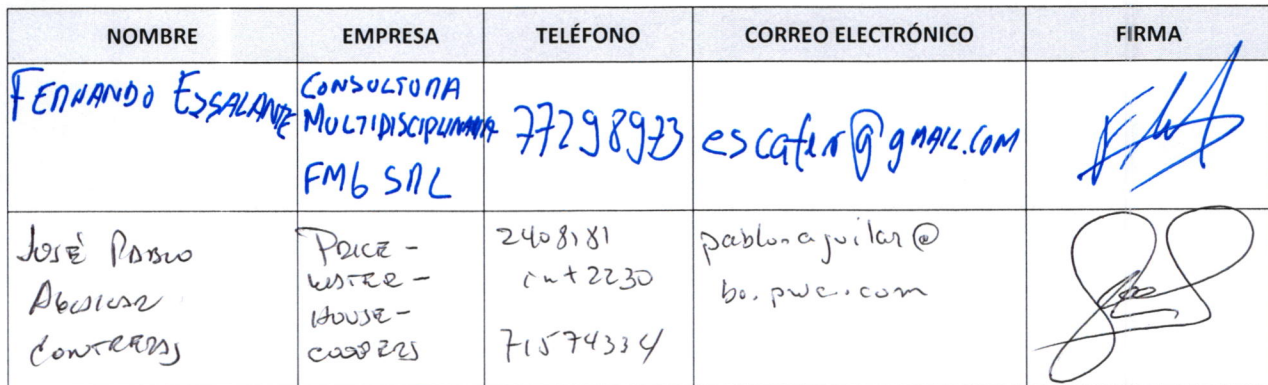 NOMBRE EMPRESA TELÉFONO CORREO ELECTRÓNICO FIRMA
FERNANDO ESCALANTE
CONSULTORA
MULTIDISCIPLINARIA
FMG SRL
77298973
escafer@gmail.com
JOSÉ PABLO
AGUILAR
CONTRERAS
PRICE-
WATER-
HOUSE-
COOPERS
2408181
int 2230
71574334
pablo.aguilar@
bo.pwc.com